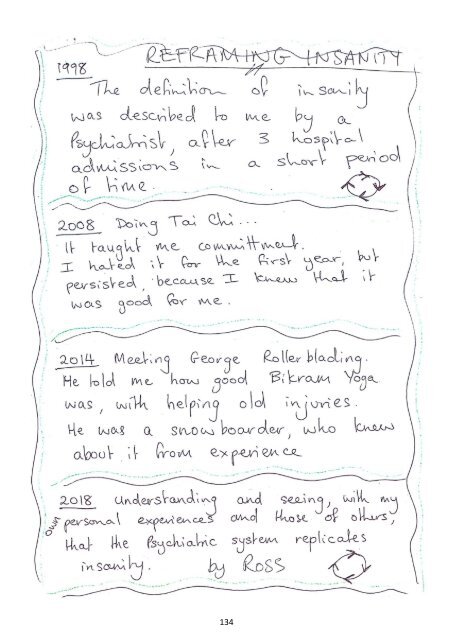 REFRAMING INSANITY
1998
The definition of insanity
was described to me by a
Psychiatrist, after 3 hospital
admissions in a short period
of time.
2008 Doing Tai Chi...
It taught me committment.
I hated it for the first year, but
persisted, because I knew that it
was good for me.
2014 Meeting George Rollerblading.
He told me how good Bikram Yoga
was, with helping old injuries.
He was a snowboarder, who knew
about it from experience
2018 Understanding and seeing, with my
own personal experiences and those of others,
that the Psychiatric system replicates
insanity. by ROSS
134